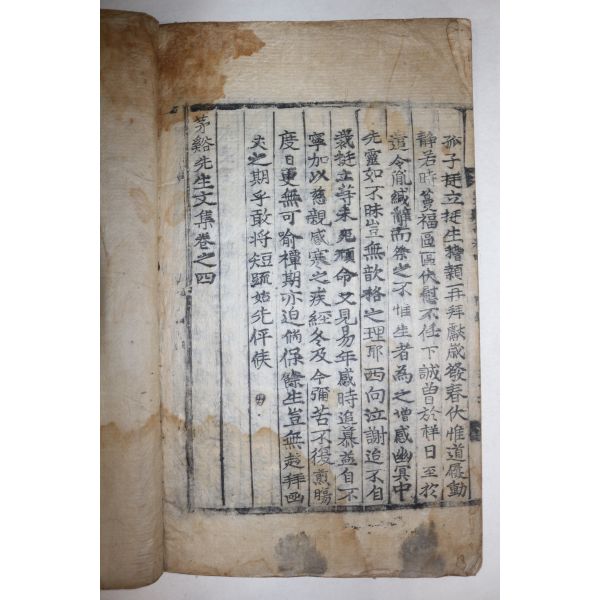 孤子挺立挺生稽顙再拜獻歲發春伏惟道履動
靜若時萬福區區伏慰不任下誠曾於祥日至於
令胤緘辭而祭之不惟生者為之增感幽冥中
先靈如不昧豈無歆格之理耶西向泣謝追不自
幾挺立等未死頑命又見易年感時追慕益自不
寧加以慈親感寒之疾經冬及今彌苦不復煎腸
度日更無可喻禫期亦迫倘保餘生豈無趨拜函
丈之期乎敢將短疏姑先伻候
茅谿先生文集卷之四